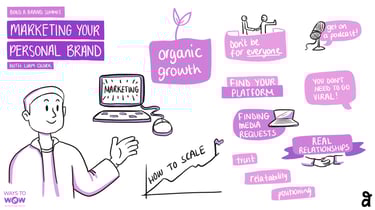 BUILD A BRAND SUMMIT
MARKETING YOUR
PERSONAL BRAND
WITH
MARKETING
organic
growth
HOW TO SCALE
Don't be
for everyone
get on
a podcast!
FIND YOUR
PLATFORM
YOU DON'T
NEED TO GO
VIRAL!
FINDING
MEDIA
REQUESTS
REAL
RELATIONSHIPS
trust
relatability
positioning
WAYS TO
WOW